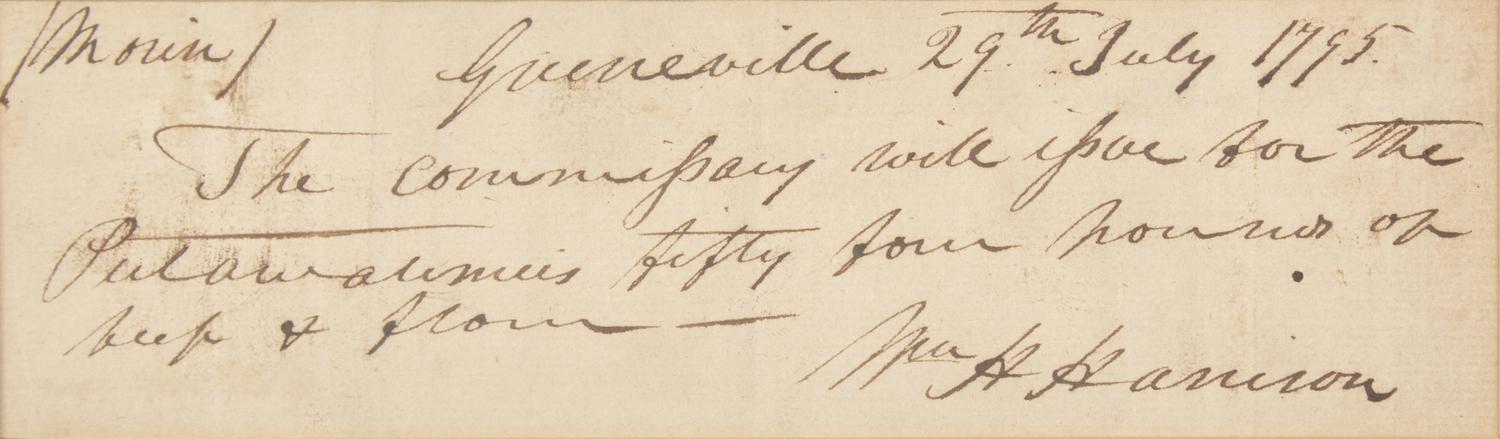 (Morin) Greeneville 29th July 1795.
The commissary will issue for the
Putawatimies fifty four pounds of
beef & flour —
Wm H Harrison